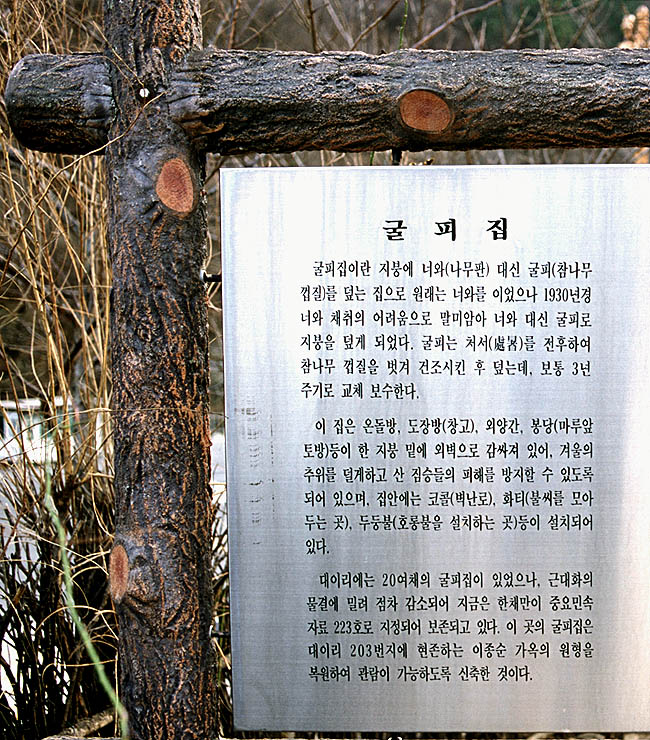 굴 피 집
굴피집이란 지붕에 너와(나무판) 대신 굴피(참나무
껍질)를 덮는 집으로 원래는 너와를 이었으나 1930년경
너와 채취의 어려움으로 말미암아 너와 대신 굴피로
지붕을 덮게 되었다. 굴피는 처서(處暑)를 전후하여
참나무 껍질을 벗겨 건조시킨 후 덮는데, 보통 3년
주기로 교체 보수한다.
이 집은 온돌방, 도장방(창고), 외양간, 봉당(마루앞
토방)등이 한 지붕 밑에 외벽으로 감싸져 있어, 겨울의
추위를 덜게하고 산 짐승들의 피해를 방지할 수 있도록
되어 있으며, 집안에는 코콜(벽난로), 화티(불씨를 모아
두는 곳), 두둥불(호롱불을 설치하는 곳)등이 설치되어
있다.
대이리에는 20여채의 굴피집이 있었으나, 근대화의
물결에 밀려 점차 감소되어 지금은 한채만이 중요민속
자료 223호로 지정되어 보존되고 있다. 이 곳의 굴피집은
대이리 203번지에 현존하는 이종순 가옥의 원형을
복원하여 관람이 가능하도록 신축한 것이다.